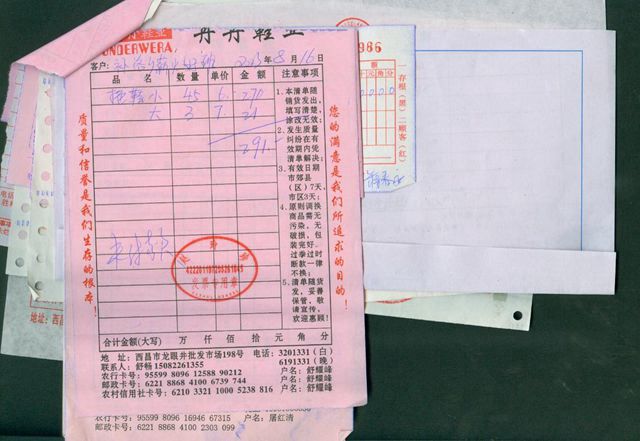 丹丹鞋业
UNDERWERA
986
客户： 2013年8月16日
品名 数量 单价 金额 注意事项
小 45 6 270
大 3 7 21
291
1.本清单随
销货发出，
填写清楚，
涂改无效；
2.发生质量
纠纷在有
效期内凭
清单解决；
3.有效日期
市郊县
（区）7天，
市区3天；
4.原则调换
商品需无
污染，无
破损，包
装完好。
过季过时
断款一律
不换；
5.清单随货
发，妥善
保管，敬
请宣传，
欢迎惠顾！
质量和信誉是我们生存的根本！
您的满意是我们所追求的目的！
一存根（黑） 二顾客（红）
额
元角分
发票专用章
合计金额(大写) 万 仟 佰 拾 元 角
地 址：西昌市龙眼井批发市场198号 电话：3201331（白）
联系人：舒畅 15082261355 6191331（晚）
农行卡号：95599 8096 12588 90212 户名：舒耀峰
邮政卡号：6221 8868 4100 6739 744 户名：舒耀峰
农村信用社卡号：6210 3321 1000 5238 816 户名：舒耀峰
地址：西昌
农行卡号：95599 8096 16946 67315 户名：屠红清
邮政卡号：6221 8868 4100 2303 099